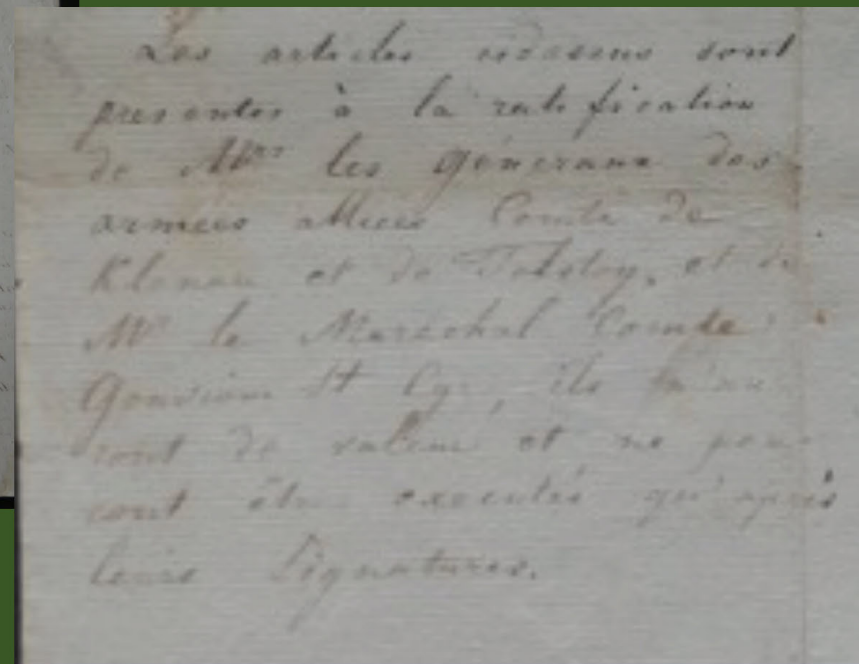 Les articles cidessus sont
presentés à la ratification
de Mrs les Généraux des
armées alliées Comte de
Klenau et de Tolstoy, et de
Mr le Maréchal Comte
Gouvion St Cyr, ils n'au
ront de valeur et ne pour
ront être executés qu'après
leurs Signatures.